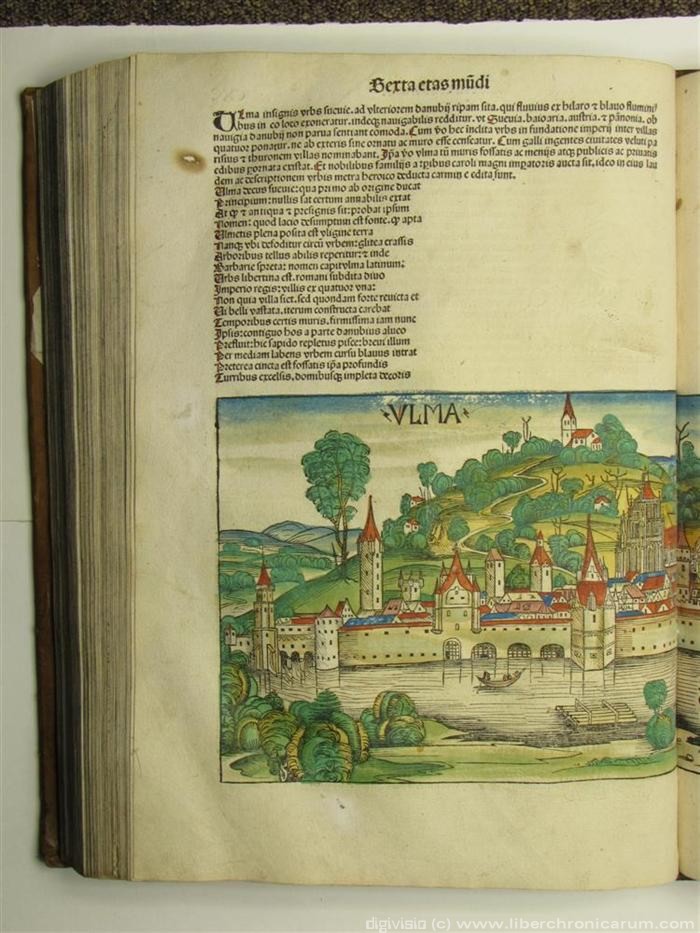 Sexta etas mūdi
Ulma insignis vrbs sueuie. ad vlteriorem danubij ripam sita. qui fluuius ex hilaro ⁊ blauo flumini
bus in eo loco exoneratur. indeqꝫ nauigabilis redditur. vt Sueuia, baioaria, austria. ⁊ pānonia. ob
nauigia danubij non parua sentiant cōmoda. Cum v̄o hec inclita vrbs in fundatione imperij inter villas
quatuor ponatur. ne ab exteris sine ornatu ac muro esse censeatur. Cum galli ingentes ciuitates veluti pa
risius ⁊ tiburonem villas nominabant. Ip̄a v̄o vlma tū muris fossatis ac menijs atqꝫ publicis ac priuatis
edibus ꝑornata existat. Et nobilibus familijs a tꝑibus caroli magni imꝑatoris aucta sit, ideo in eius lau
dem ac descriptionem vrbis metra heroico deducta carmine edita sunt.
Ulma decus sueuie: qua primo ab origine ducat
Principium: nullis sat certum annabilis extat
At ꝙ ⁊ antiqua ⁊ presignis sit: probat ipsum
Nomen: quod lacio desumptum est fonte. ꝙ apta
Ulmetis plena posita est vligine terra
Nanqꝫ vbi defoditur circū vrbem: glitea crassis
Arboribus tellus abilis reperitur: ⁊ inde
Barbarie spreta: nomen capit vlma latinum:
Urbs libertina est. romani subdita diuo
Imperio regis: villis ex quatuor vna:
Non quia villa siet. sed quondam forte reuicta et
Ui belli vastata, iterum constructa carebat
Temporibus certis muris. firmissima iam nunc
Ipsis: contiguo hos a parte danubius alueo
Prefluit: hic sapido repletus pisce: breui illum
Per mediam labens vrbem cursu blauus intrat
Preterea cincta est fossatis ip̄a profundis
Turribus excelsis. domibusqꝫ impleta decoris
VLMA
digivisio (c) www.liberchronicarum.com